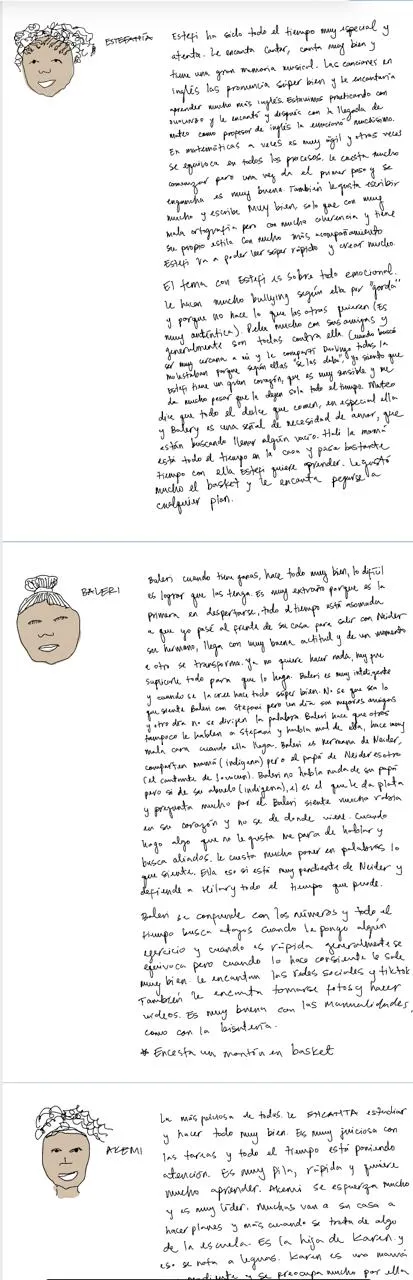 ESTEFANÍA
Estefi ha sido todo el tiempo muy especial y
atenta. Le encanta cantar, canta muy bien y
tiene una gran memoria musical. Las canciones en
inglés las pronuncia súper bien y le encantaría
aprender mucho más inglés. Estuvimos practicando con
y le encantó y después con la llegada de
Mateo como profesor de inglés la emocionó muchísimo.
En matemáticas a veces es muy ágil y otras veces
se equivoca en todos los procesos. le cuesta mucho
comenzar pero una vez da el primer paso y se
engancha es muy buena. También le gusta escribir
mucho y escribe Muy bien, solo que con muy
mala ortografía pero con mucha coherencia y tiene
su propio estilo. Con mucho más acompañamiento
Estefi va a poder leer súper rápido y crear mucho.
El tema con Estefi es sobre todo emocional.
Le hacen mucho bullying según ella por "gorda"
y porque no hace lo que los otros quieren (Es
muy auténtica). Pelea mucho con sus amigas y
generalmente son todas contra ella. Cuando buscó
ser muy cercana a mí y le compartí todas la
molestaban porque según ellas "se las daba". yo siento que
Estefi tiene un gran corazón, que es muy sensible y me
da mucho pesar que la dejen sola todo el tiempo. Mateo
dice que todo el dulce que comen, en especial ella
y Balery es una señal de necesidad de amar, que
están buscando llenar algún vacío. Hali la mamá
está todo el tiempo en la casa y pasa bastante
tiempo con ella. Estefi quiere aprender. Le gustó
mucho el basket y le encanta pegarse a
cualquier plan.
BALERI
Baleri cuando tiene ganas, hace todo muy bien, lo difícil
es lograr que las tenga. Es muy extraño porque es la
primera en despertarse, todo el tiempo está asomada
a que yo pase al frente de su casa para salir con Neider
su hermano, llega con muy buena actitud y de un momento
a otro se transforma. ya no quiere hacer nada, hay que
suplicarle todo para que lo haga. Baleri es muy inteligente
y cuando se la cree hace todo súper bien. No se que sea lo
que siente Baleri con Stefani pero un día son mejores amigas
y otro día no se dirigen la palabra. Baleri hace que otros
tampoco le hablen a Stefani y habla mal de ella, hace muy
mala cara cuando ella llega. Baleri es hermana de Neider,
comparten mamá (indígena) pero el papá de Neider es otro
(el cantante de). Baleri no habla nada de su papá
pero si de su abuelo (indígena), el es el que le da plata
y pregunta mucho por el. Baleri siente mucha rabia
en su corazón y no se de donde viene. Cuando
hago algo que no le gusta me para de hablar y
busca aliados. le cuesta mucho poner en palabras lo
que siente. Ella eso si está muy pendiente de Neider y
defiende a Hilary todo el tiempo que puede.
Baleri se confunde con los números y todo el
tiempo busca atajos cuando le pongo algún
ejercicio y cuando es rápida generalmente se
equivoca pero cuando lo hace consiente le sale
muy bien. le encantan las redes sociales y tiktok.
También le encanta tomarse fotos y hacer
videos. Es muy buena con las Manualidades,
como con la bisutería.
* Encesta un montón en basket
AKEMI
La más juiciosa de todas. le ENCANTA estudiar
y hacer todo muy bien. Es muy juiciosa con
las tareas y todo el tiempo está poniendo
atención. Es muy pila, rápida y quiere
mucho aprender. Akemi se esfuerza mucho
y es muy líder. Muchas van a su casa a
hacer planes y más cuando se trata de algo
de la escuela. Es la hija de Karen y
eso se nota a leguas. Karen es una mamá
y se preocupa mucho por ella